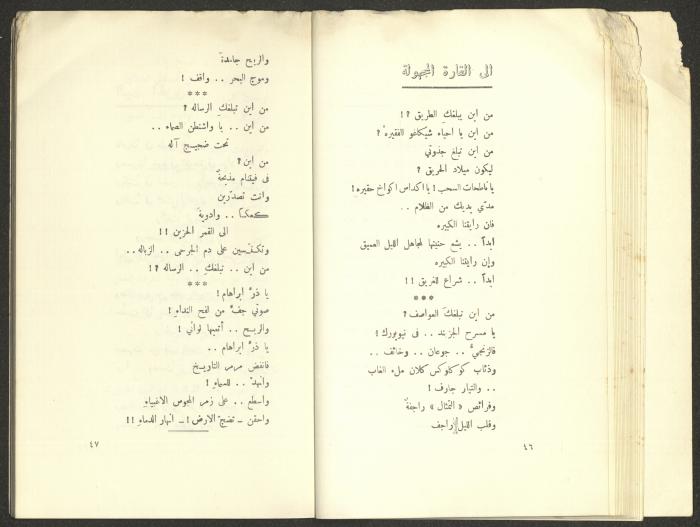 الى القارة المجهولة
من اين يبلغك الطريق ؟!
من اين يا احياء شيكاغو الفقيره ؟
من اين تبلغ جذوتي
ليكون ميلاد الحريق ؟
يا ناطحات السحب ! يا اكداس اكواخ حقيره !
مدّي يديك من الظلام ..
فلن رايتنا الكبيره
ابداً .. يشع حنينها لمجاهل الليل العميق
وإن رايتنا الكبيره
ابداً .. شراع للغريق !!
***
من اين تبلغك العواصف ؟
يا مسرح الجزبند .. فى نيويورك !
فالزنجيُّ .. جوعان .. وخائف ..
وذئاب كوكلوكس كلان ملء الغاب
.. والتيار جارف !
وفرائص « التمثال » راجفةٌ
وقلب الليل راجف
٤٦
والريح جامدة
وموج البحر .. واقف !
***
من اين تبلغكِ الرساله ؟
من اين .. يا واشنطن الصماء ..
تحت ضجيج آله
من اين ؟
فى فيتنام مذبحةٌ
وانت تصدّرين
كعكاً .. وادويةً
الى القمر الحزين !!
وتكدّسين على دم الجرحى .. الزباله ..
من اين .. تبلغك .. الرساله ؟!
***
يا ذرَّ ابراهام !
صوتي جفَّ من لفح النداء !
والريح .. أتعبها لوائي !
يا ذرَّ ابراهام ..
فانفض مرمر التاريخ
وانهدْ .. للسماء !
واسطع .. على زمر المجوس الاغبياء
واحقن – تضجّ الارض ! – انهار الدماء !!
٤٧